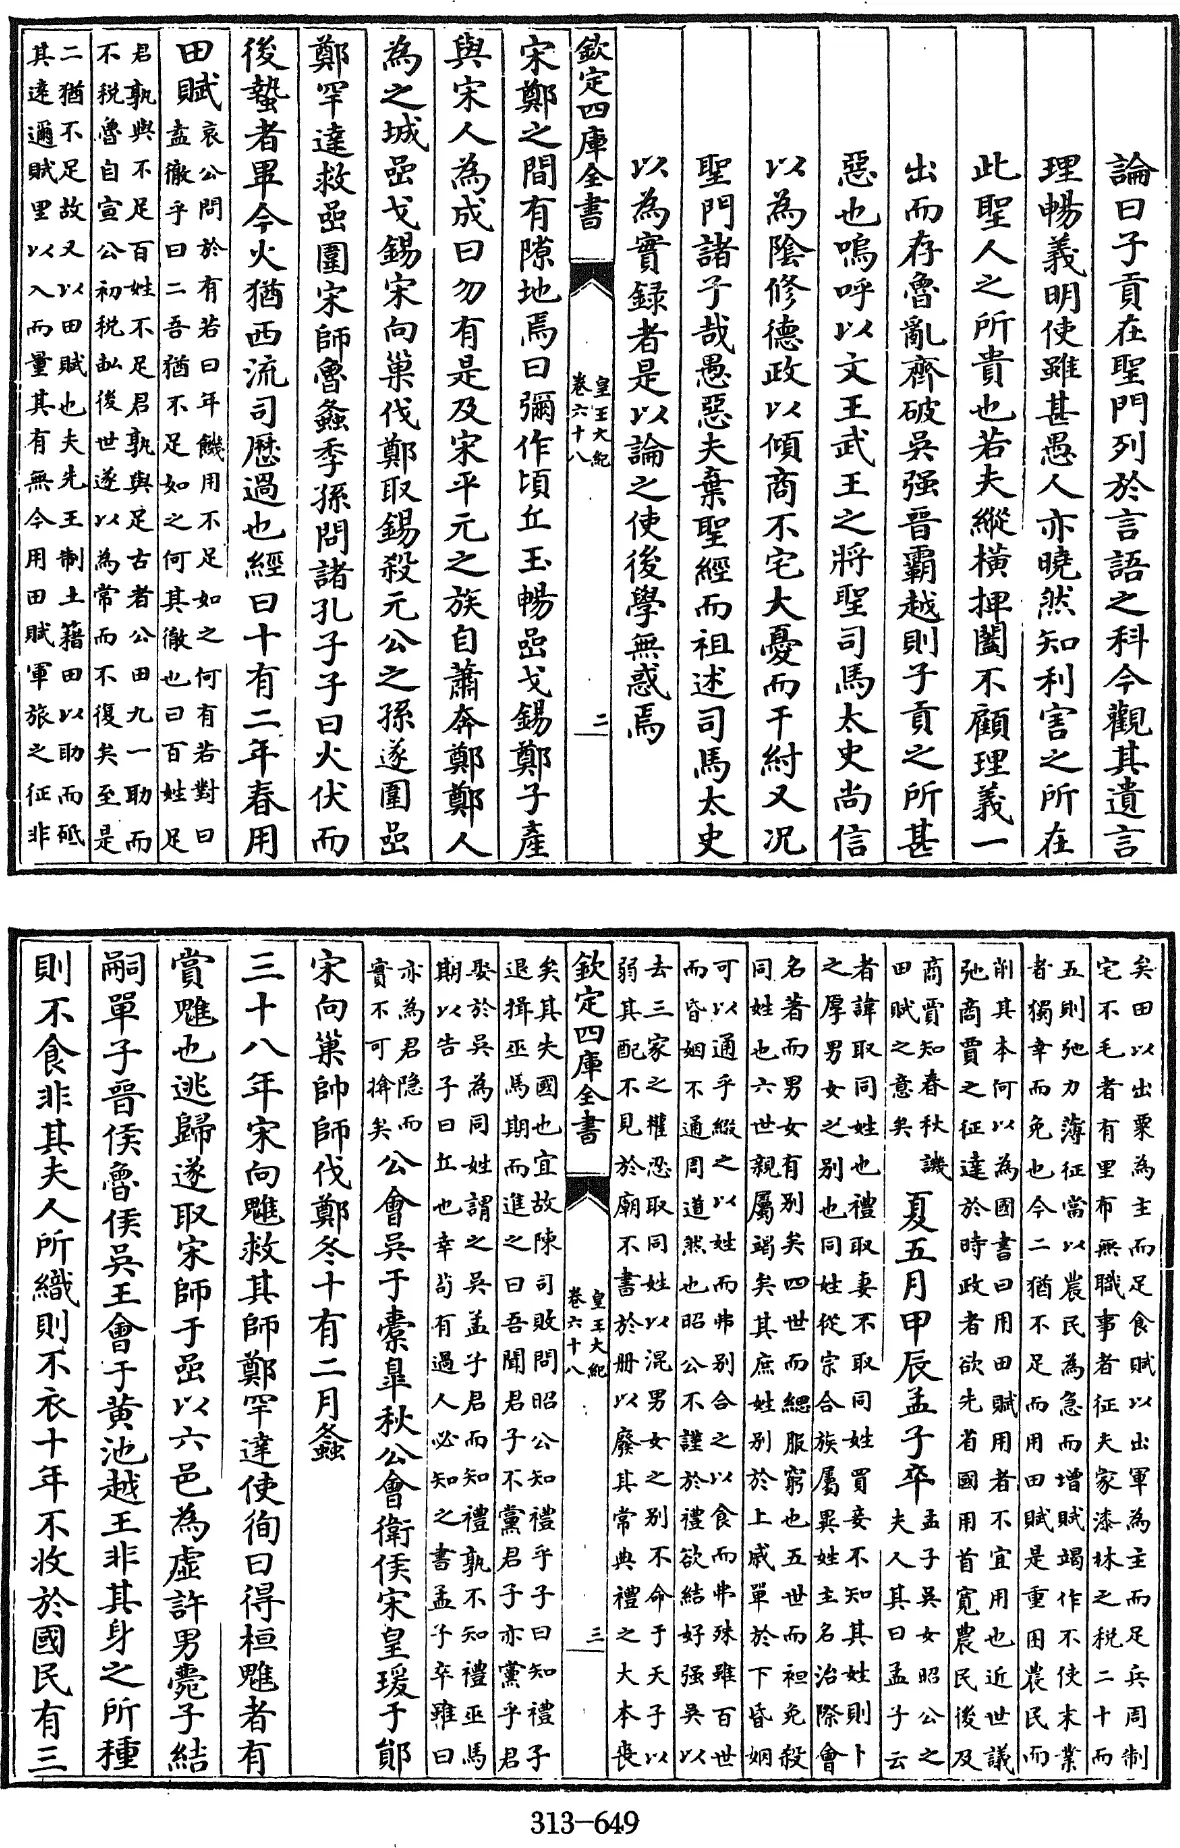 論曰子貢在聖門列於言語之科今觀其遺言
理暢義明使雖甚愚人亦曉然知利害之所在
此聖人之所貴也若夫縱橫捭闔不顧理義一
出而存魯亂齊破吳强晉霸越則子貢之所甚
惡也嗚呼以文王武王之將聖司馬太史尚信
以為陰修德政以傾商不宅大憂而干紂又况
聖門諸子哉愚惡夫棄聖經而祖述司馬太史
以為實録者是以論之使後學無惑焉
欽定四庫全書
皇王大紀
卷六十八
二
宋鄭之間有隙地焉曰彌作頃丘玉暢嵒戈錫鄭子產
與宋人為成曰勿有是及宋平元之族自蕭奔鄭鄭人
為之城嵒戈錫宋向巢伐鄭取錫殺元公之孫遂圍嵒
鄭罕達救嵒圍宋師魯螽季孫問諸孔子子曰火伏而
後蟄者畢今火猶西流司歷過也經曰十有二年春用
田賦
哀公問於有若曰年饑用不足如之何有若對曰
盍徹乎曰二吾猶不足如之何其徹也曰百姓足
君孰與不足百姓不足君孰與足古者公田九一助而
不稅魯自宣公初稅畝後世遂以為常而不復矣至是
二猶不足故又以田賦也夫先王制土籍田以助而砥
其逺邇賦里以入而量其有無今用田賦軍旅之征非
矣田以出粟為主而足食賦以出軍為主而足兵周制
宅不毛者有里布無職事者征夫家漆林之稅二十而
五則弛力薄征當以農民為急而增賦竭作不使末業
者獨幸而免也今二猶不足而用田賦是重困農民而
削其本何以為國書曰用田賦用者不宜用也近世議
弛商賈之征達於時政者欲先省國用首寛農民後及
商賈知春秋譏
田賦之意矣
夏五月甲辰孟子卒
孟子吳女昭公之
夫人其曰孟子云
者諱取同姓也禮取妻不取同姓買妾不知其姓則卜
之厚男女之别也同姓從宗合族屬異姓主名治際會
名著而男女有别矣四世而緦服窮也五世而袒免殺
同姓也六世親屬竭矣其庶姓别於上戚單於下昏姻
可以通乎綴之以姓而弗别合之以食而弗殊雖百世
而昏姻不通周道然也昭公不謹於禮欲結好强吳以
去三家之權忍取同姓以混男女之别不命于天子以
弱其配不見於廟不書於册以廢其常典禮之大本喪
欽定四庫全書
皇王大紀
卷六十八
三
矣其失國也宜故陳司敗問昭公知禮乎子曰知禮子
退揖巫馬期而進之曰吾聞君子不黨君子亦黨乎君
娶於吳為同姓謂之吳孟子君而知禮孰不知禮巫馬
期以告子曰丘也幸苟有過人必知之書孟子卒雖曰
亦為君隱而
實不可揜矣
公會吳于橐皋秋公會衛侯宋皇瑗于鄖
宋向巢帥師伐鄭冬十有二月螽
三十八年宋向魋救其師鄭罕達使徇曰得桓魋者有
賞魋也逃歸遂取宋師于嵒以六邑為虛許男薨子結
嗣單子晉侯魯侯吳王會于黃池越王非其身之所種
則不食非其夫人所織則不衣十年不收於國民有三
313-649